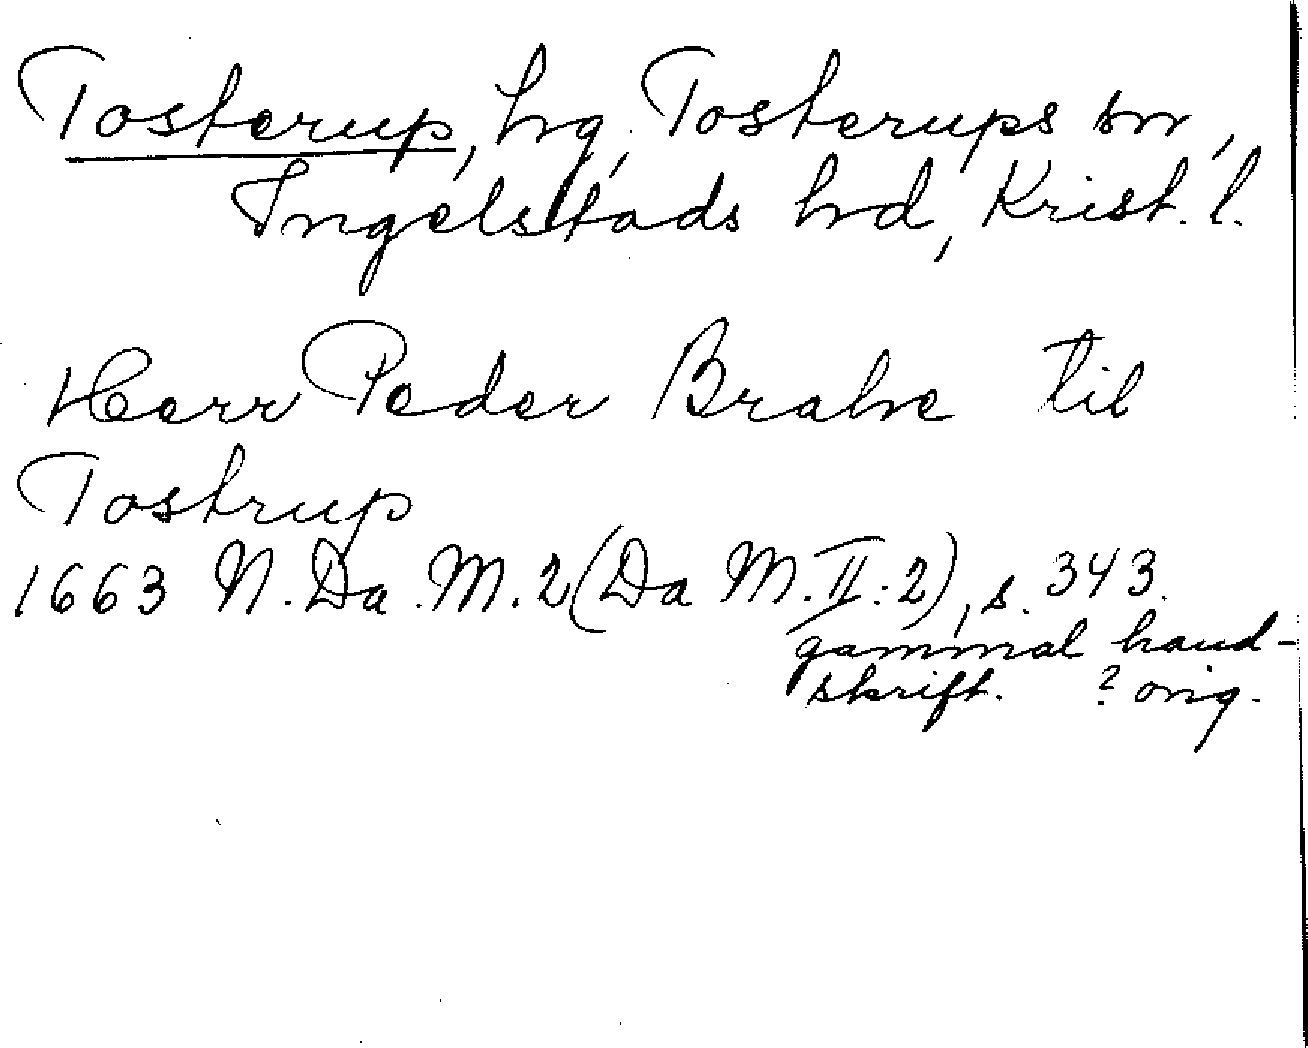 Tosterup, hrg, Tosterups sn,
Ingelstads hrd, Krist. l.
Herr Peder Brahe til
Tostrup
1663 N. Da. M. 2 (Da M. II: 2), s. 343.
gammal hand-
skrift. ? orig.